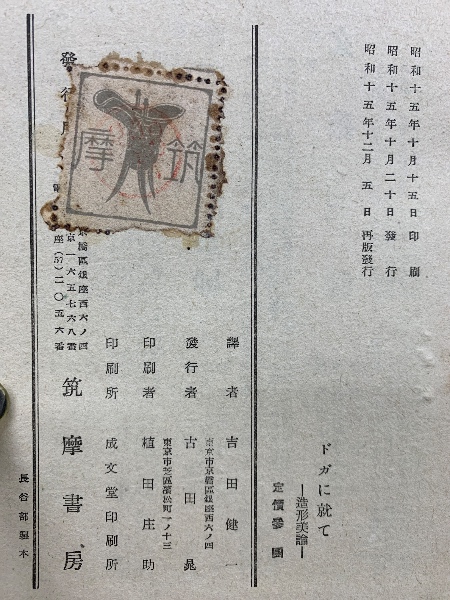 昭和十五年十月十五日印刷
昭和十五年十月二十日發行
昭和十五年十二月五日再版發行
ドガに就て
―造形美論―
定價參圓
譯者 吉田健一
東京市京橋區銀座西六ノ四
發行者 古田晁
東京市芝區濱松町一ノ十三
印刷者 植田庄助
印刷所 成文堂印刷所
發行所
筑摩書房
京橋區銀座西六ノ四
京一六五七六八番
座(57)二〇五六番
筑摩
長谷部製本